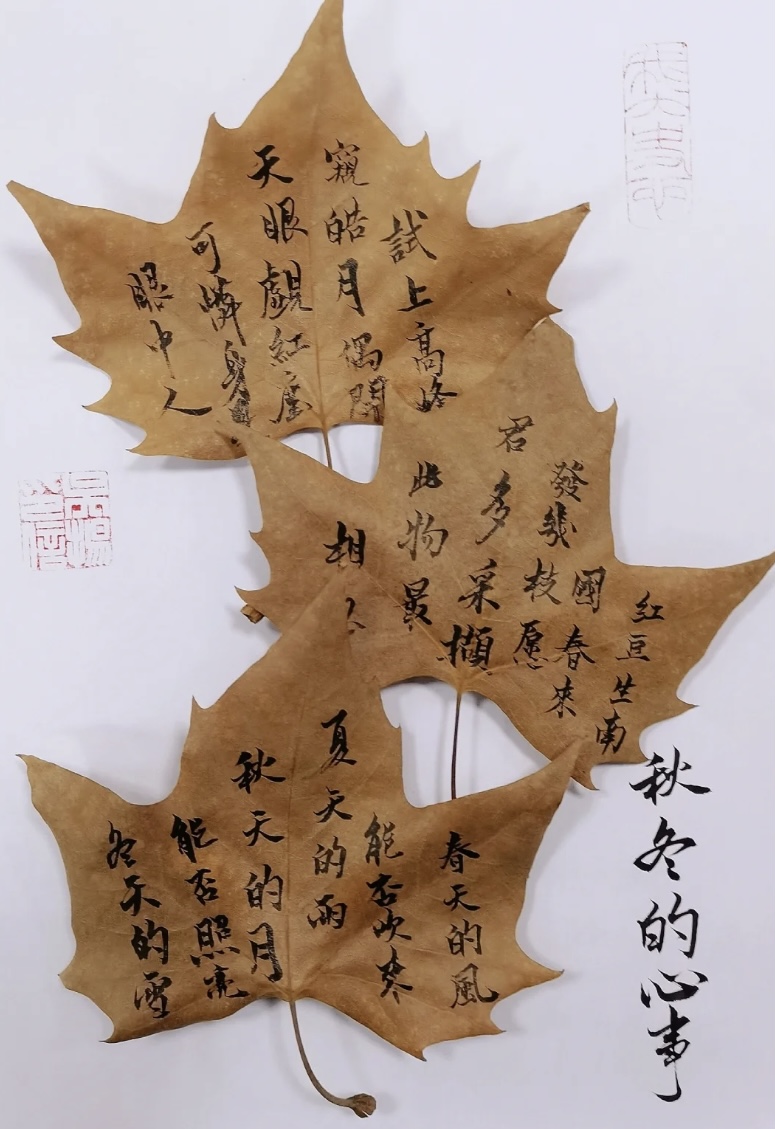 試上高峰
窺皓月偶開
天眼覷紅塵
可憐身是
眼中人
紅豆生南
國春來
發幾枝愿
君多采擷
此物最
相
春天的風
能否吹來
夏天的雨
秋天的月
能否照亮
冬天的雪
秋冬的心事